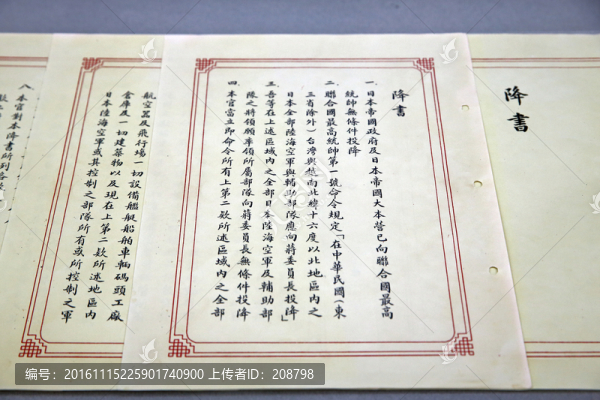 降書
降書
一、日本帝國政府及日本帝國大本營已向聯合國最高
統帥無條件投降
二、聯合國最高統帥第一號命令規定「在中華民國(東
三省除外)台灣與越南北緯十六度以北地區內之
日本全部陸海空軍與輔助部隊應向蔣委員長投降」
三、吾等在上述區域內之全部日本陸海空軍及輔助部
隊之將領願率領所屬部隊向蔣委員長無條件投降
四、本官當立即命令所有上第二款所述區域內之全部
航空器及飛行場一切設備艦艇船舶車輛碼頭工廠
倉庫及一切建築物以及現在上第二款所述地區內
日本陸海空軍或其控制之部隊所有或所控制之軍
八、本官對本降書所列各款
編号:20161115225901740900 上传者ID:208798